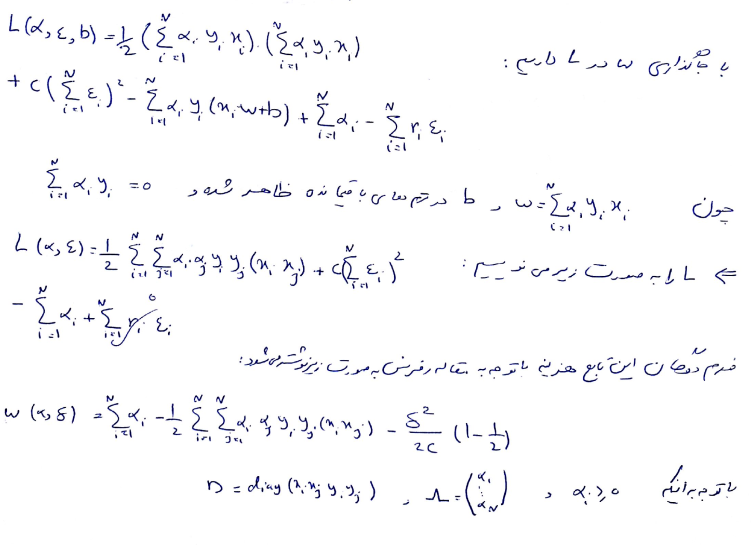 با جایگذاری w در L داریم:
L(α, ε, b) = 1/2 (∑_{i=1}^{N} α_i y_i x_i).(∑_{i=1}^{N} α_i y_i x_i)
+ C(∑_{i=1}^{N} ε_i)^2 - ∑_{i=1}^{N} α_i y_i (x_i w+b) + ∑_{i=1}^{N} α_i - ∑_{i=1}^{N} r_i ε_i
چون w = ∑_{i=1}^{N} α_i y_i x_i و b در ترم های باقیمانده ظاهر شده و ∑_{i=1}^{N} α_i y_i = 0
⇐ L را به صورت زیر می نویسیم:
L(α, ε) = 1/2 ∑_{i=1}^{N} ∑_{j=1}^{N} α_i α_j y_i y_j (x_i x_j) + C(∑_{i=1}^{N} ε_i)^2
- ∑_{i=1}^{N} α_i + ∑_{i=1}^{N} r_i ε_i 0
فرم دوگان این تابع هزینه با توجه به مقاله رفرنس به صورت زیر نوشته می شود:
w(α, δ) = ∑_{i=1}^{N} α_i - 1/2 ∑_{i=1}^{N} ∑_{j=1}^{N} α_i α_j y_i y_j (x_i x_j) - δ^2/2C (1 - 1/2)
با توجه به اینکه 0 ≤ α_i و Λ = (α_1 ⋮ α_N) و D = diag(x_i x_j y_i y_j)